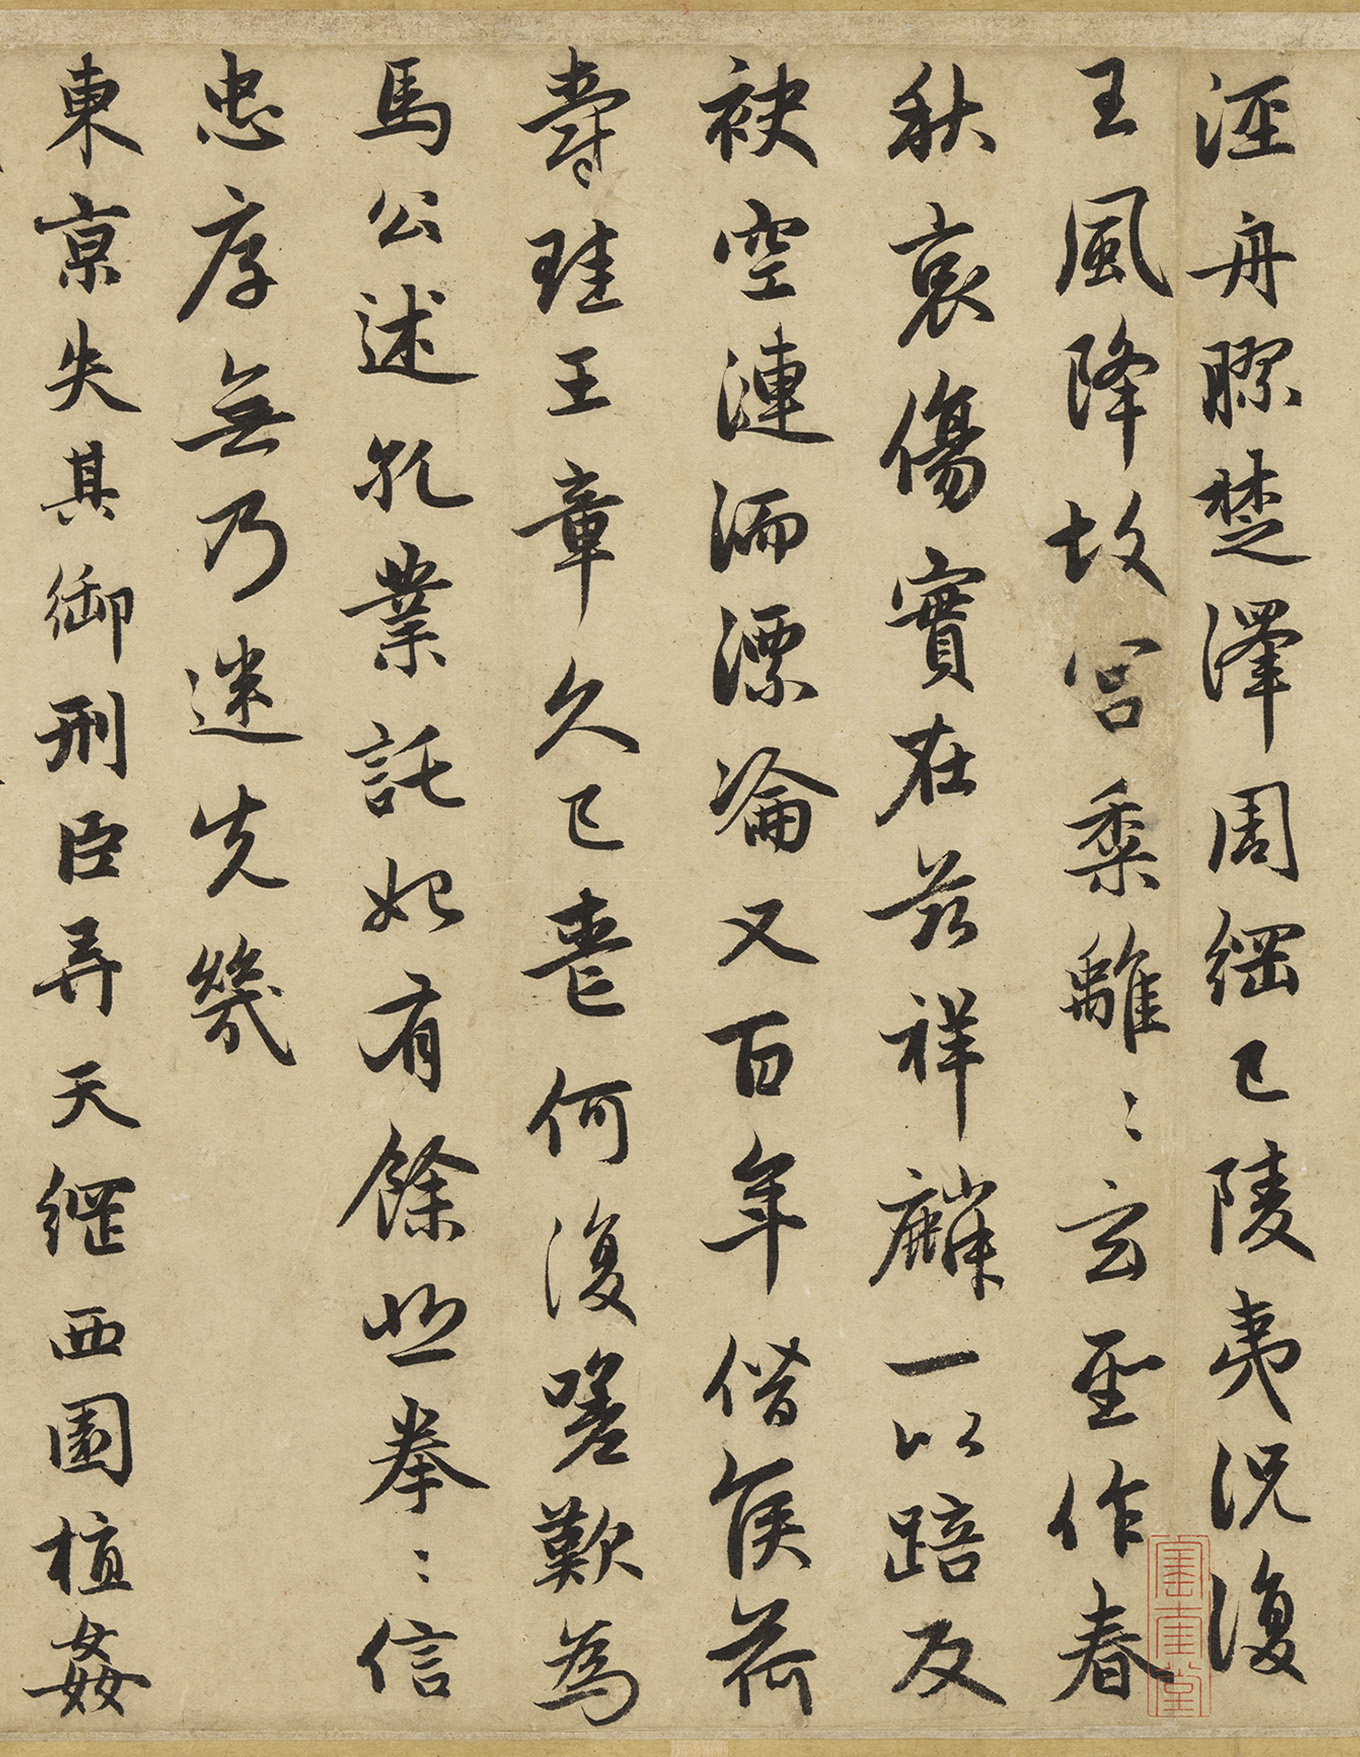 涇舟膠楚澤周綱已陵夷況復
王風降故宮黍離〻玄聖作春
秋哀傷實在茲祥麟一以踣反
袂空漣洏漂淪又百年僭侯荷
爵珪王章久已喪何復嗟歎為
馬公述孔業託始有餘悲拳〻信
忠厚無乃迷先幾
東京失其御刑臣弄天綱西園植姦